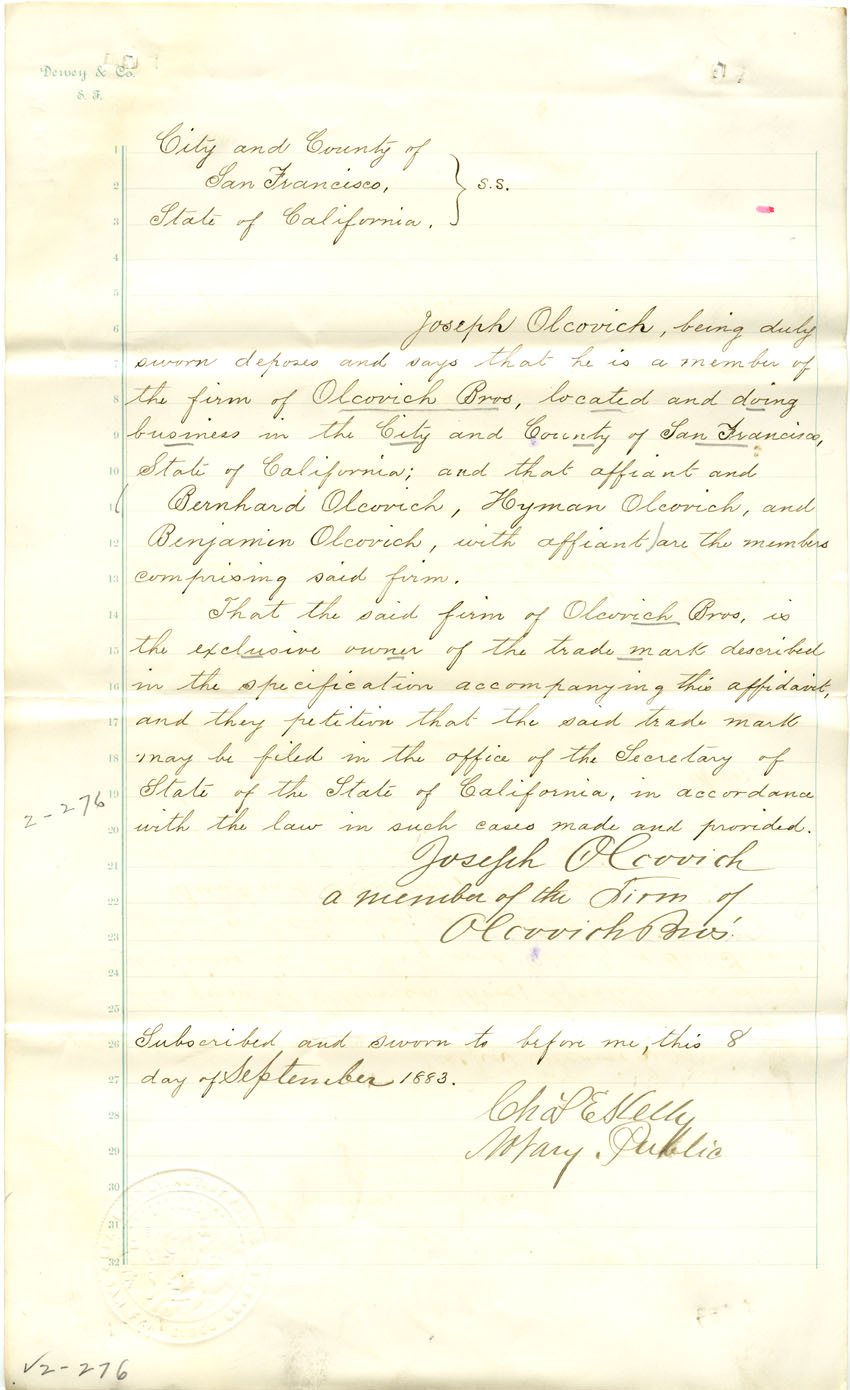 Dewey & Co.
S. F.
1 City and County of
2 San Francisco, } s.s.
3 State of California.
4
5
6 Joseph Olcovich, being duly
7 sworn deposes and says that he is a member of
8 the firm of Olcovich Bros, located and doing
9 business in the City and County of San Francisco,
10 State of California; and that affiant and
11 ( Bernhard Olcovich, Hyman Olcovich, and
12 Benjamin Olcovich, with affiant) are the members
13 comprising said firm.
14 That the said firm of Olcovich Bros, is
15 the exclusive owner of the trade mark described
16 in the specification accompanying this affidavit,
17 and they petition that the said trade mark
18 may be filed in the office of the Secretary of
19 State of the State of California, in accordance
2-276
20 with the law in such cases made and provided.
21 Joseph Olcovich
22 a member of the Firm of
23 Olcovich Bros.
24
25
26 Subscribed and sworn to before me, this 8
27 day of September 1883.
28 Chas E Kelly
29 Notary Public
30
31
32
√2-276